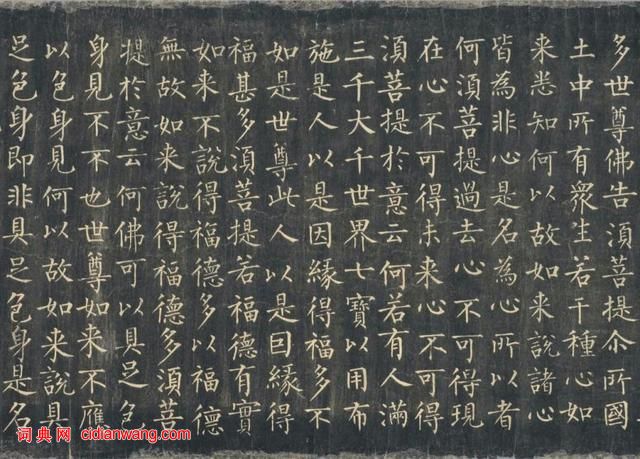 多世尊佛告須菩提尒所國
土中所有衆生若干種心如
来悉知何以故如来說諸心
皆為非心是名為心所以者
何須菩提過去心不可得現
在心不可得未来心不可得
須菩提於意云何若有人滿
三千大千世界七寶以用布
施是人以是因緣得福多不
如是世尊此人以是因緣得
福甚多須菩提若福德有實
如来不說得福德多以福德
無故如来說得福德多須菩
提於意云何佛可以具足色
身見不不也世尊如来不應
以色身見何以故如来說具
足色身即非具足色身是名
词典网 cidianwang.com